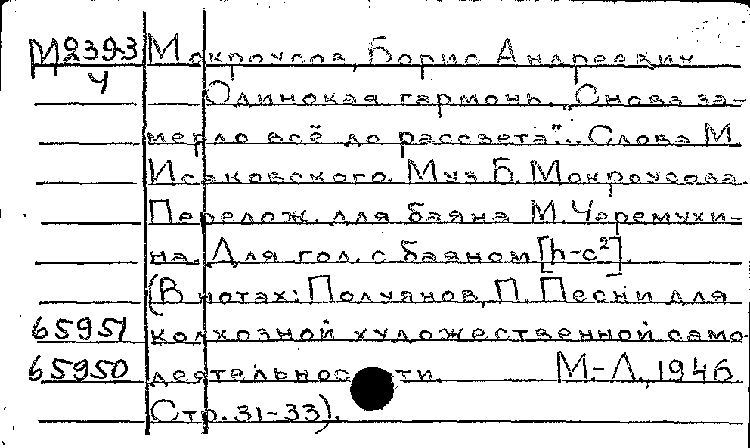 М2393 Мокроусов, Борис Андреевич
4 Одинокая гармонь. „Снова за-
мерло всё до рассвета"... Слова М.
Исаковского. Муз. Б. Мокроусова.
Перелож. для баяна М. Черемухи-
на. Для гол. с баяном [h-c²].
(В нотах: Полуянов, П. Песни для
65951 колхозной художественной само-
65950 деятельности. М.-Л., 1946.
Стр. 31-33).